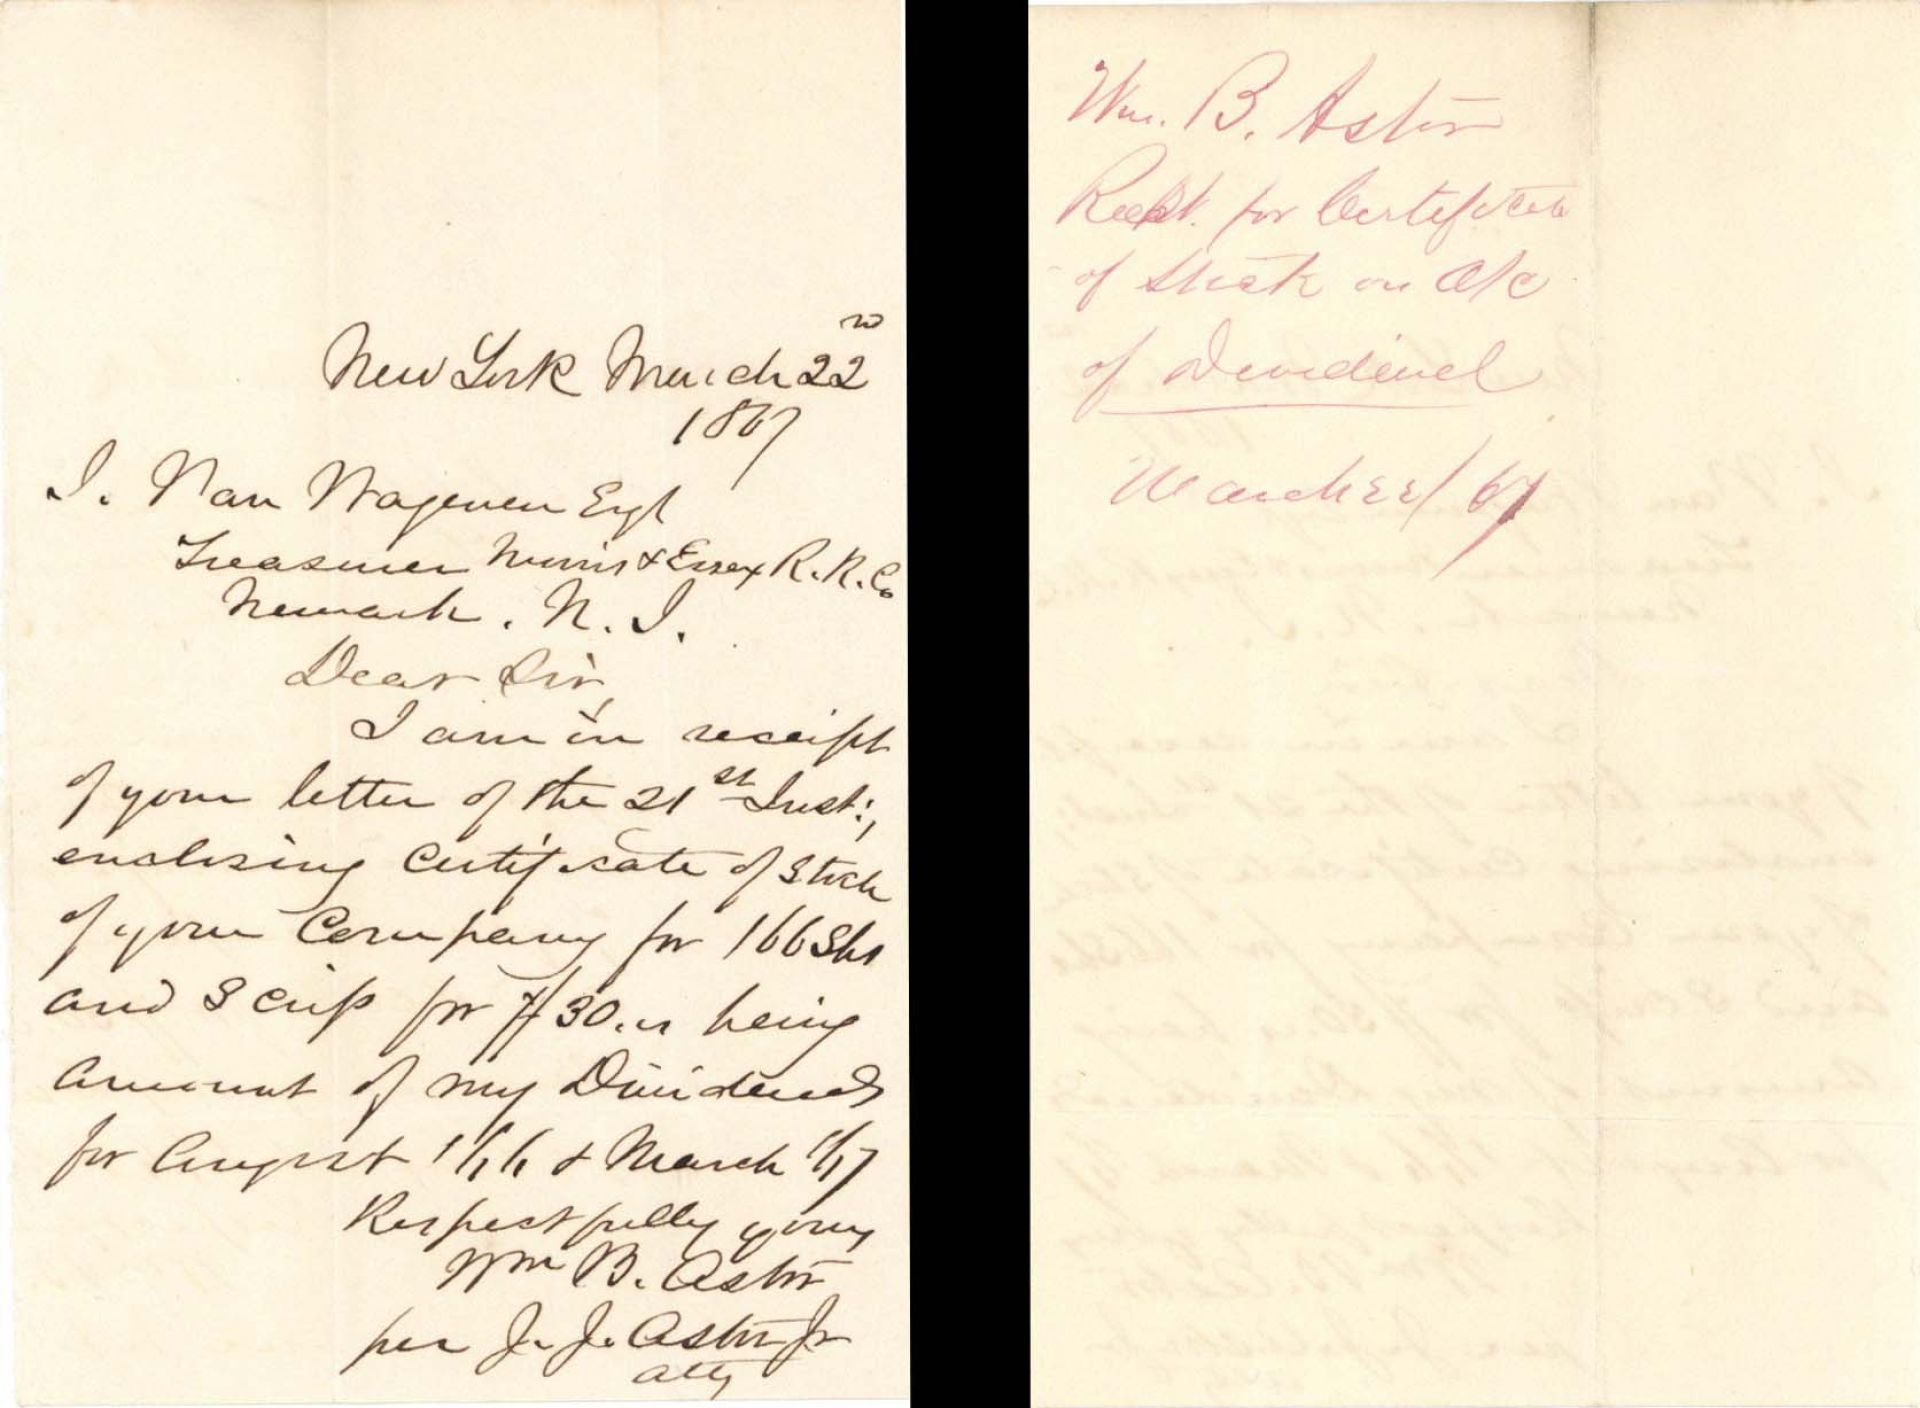 New York March 22nd
1867
I. Van Wagenen Esqr
Treasurer Morris & Essex R. R. Co
Newark. N. J.
Dear Sir,
I am in receipt
of your letter of the 21st Inst:,
enclosing Certificate of Stock
of your Company for 166 Shs
and Scrip for $30.
being
amount of my Dividends
for August 1/66 & March 1/67
Respectfully yours
Wm B. Astor
per J. J. Astor Jr
atty
Wm. B. Astor
Recpt. for Certificate
of Stock on a/c
of Devidend
March 22/67